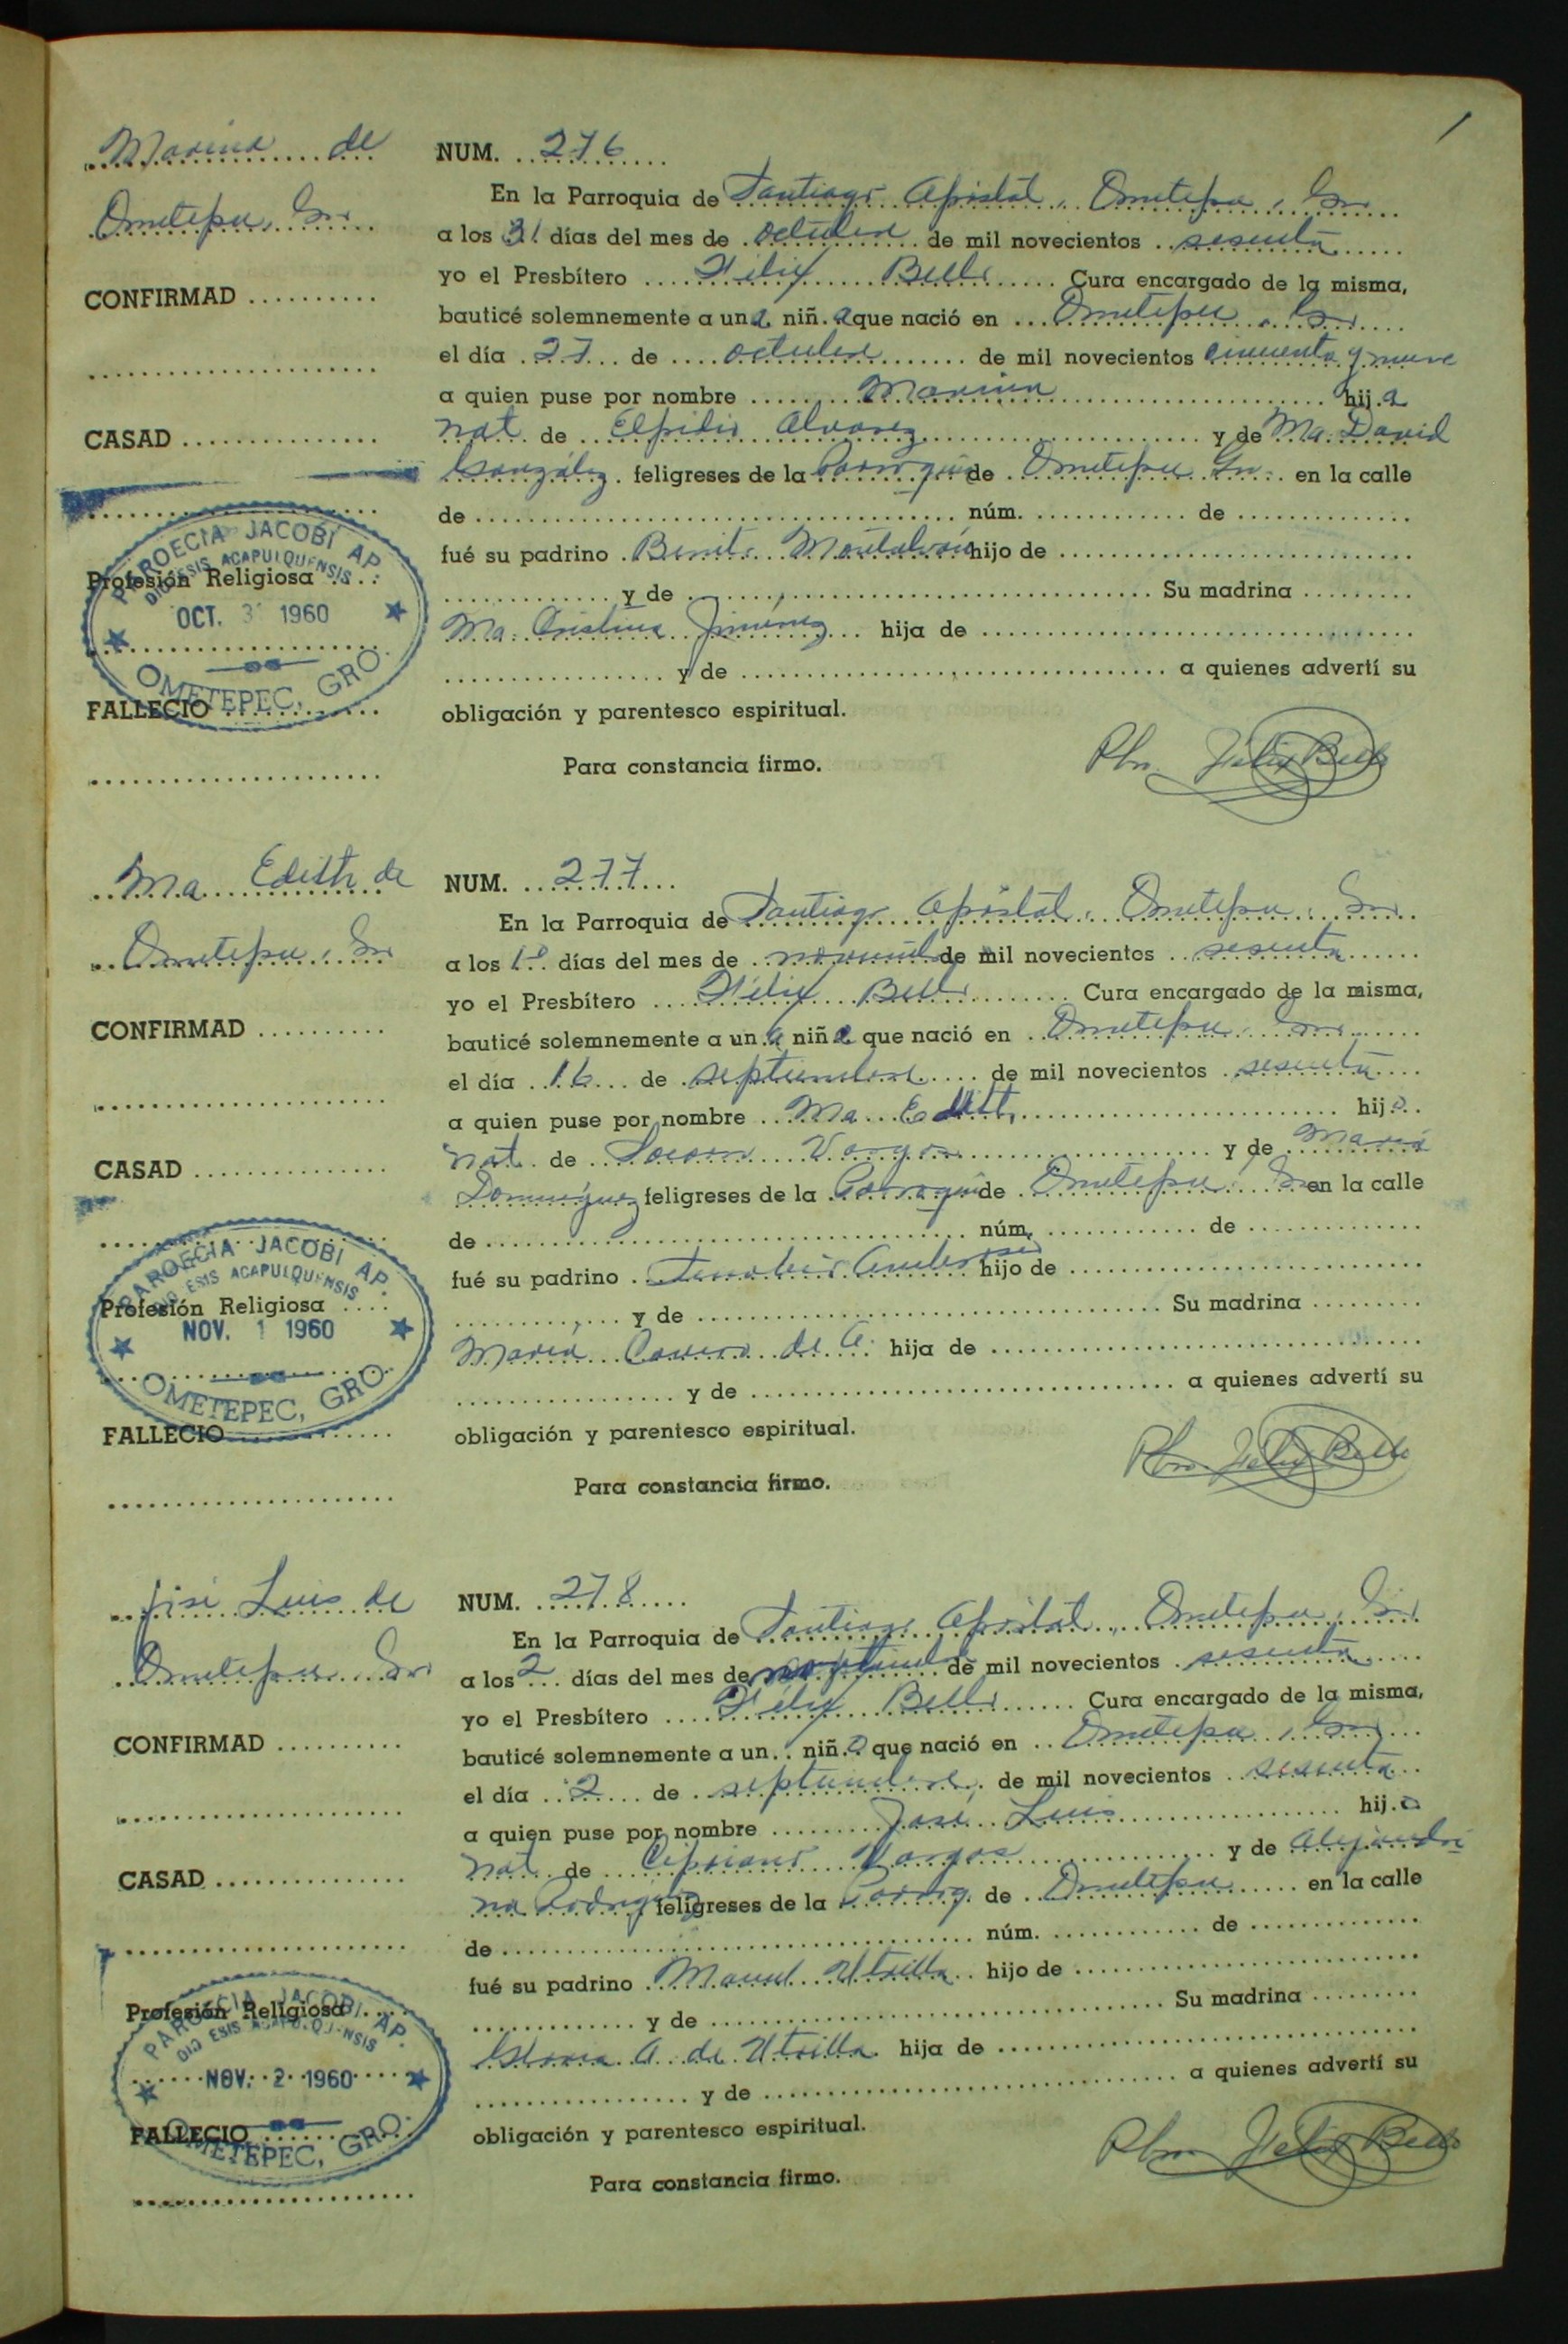 1
Marina de
Ometepec, Gro.
CONFIRMAD
CASAD
Profesión Religiosa
FALLECIO
PAROECIA JACOBI AP.
DIOCESIS ACAPULQUENSIS
OCT. 3 1960
OMETEPEC, GRO.
NUM. 276
En la Parroquia de Santiago Apóstol, Ometepec, Gro.
a los 31 días del mes de octubre de mil novecientos sesenta
yo el Presbítero Félix Bello Cura encargado de la misma,
bauticé solemnemente a una niña que nació en Ometepec, Gro.
el día 27 de octubre de mil novecientos cincuenta y nueve
a quien puse por nombre Marina hija
nat. de Elpidio Alvarez y de Ma. David
González feligreses de la Parroquia de Ometepec Gro. en la calle
de núm. de
fué su padrino Benito hijo de
y de Su madrina
Ma. Cristina Jiménez hija de
y de a quienes advertí su
obligación y parentesco espiritual.
Para constancia firmo.
Pbro. Félix Bello
Ma Edith de
Ometepec, Gro
CONFIRMAD
CASAD
Profesión Religiosa
FALLECIO
PAROECIA JACOBI AP.
DIOCESIS ACAPULQUENSIS
NOV. 1 1960
OMETEPEC, GRO.
NUM. 277
En la Parroquia de Santiago Apóstol, Ometepec, Gro.
a los 1o. días del mes de noviembre de mil novecientos sesenta
yo el Presbítero Félix Bello Cura encargado de la misma,
bauticé solemnemente a una niña que nació en Ometepec, Gro.
el día 16 de septiembre de mil novecientos sesenta
a quien puse por nombre Ma Edith hijo
nat. de Vargas y de María
Domínguez feligreses de la Parroquia de Ometepec, Gro en la calle
de núm. de
fué su padrino hijo de
y de Su madrina
María de A. hija de
y de a quienes advertí su
obligación y parentesco espiritual.
Para constancia firmo.
Pbro. Félix Bello
José Luis de
Ometepec Gro
CONFIRMAD
CASAD
Profesión Religiosa
FALLECIO
PAROECIA JACOBI AP.
DIO ESIS ACAPULQUENSIS
NOV. 2 1960
OMETEPEC, GRO.
NUM. 278
En la Parroquia de Santiago Apóstol, Ometepec, Gro
a los 2 días del mes de de mil novecientos sesenta
yo el Presbítero Félix Bello Cura encargado de la misma,
bauticé solemnemente a un niño que nació en Ometepec, Gro.
el día 2 de septiembre de mil novecientos sesenta
a quien puse por nombre José Luis hijo
nat. de Cipriano Vargas y de Alejandri
na Rodríguez feligreses de la Parroq. de Ometepec en la calle
de núm. de
fué su padrino Manuel Utrilla hijo de
y de Su madrina
Gloria A. de Utrilla hija de
y de a quienes advertí su
obligación y parentesco espiritual.
Para constancia firmo.
Pbro. Félix Bello